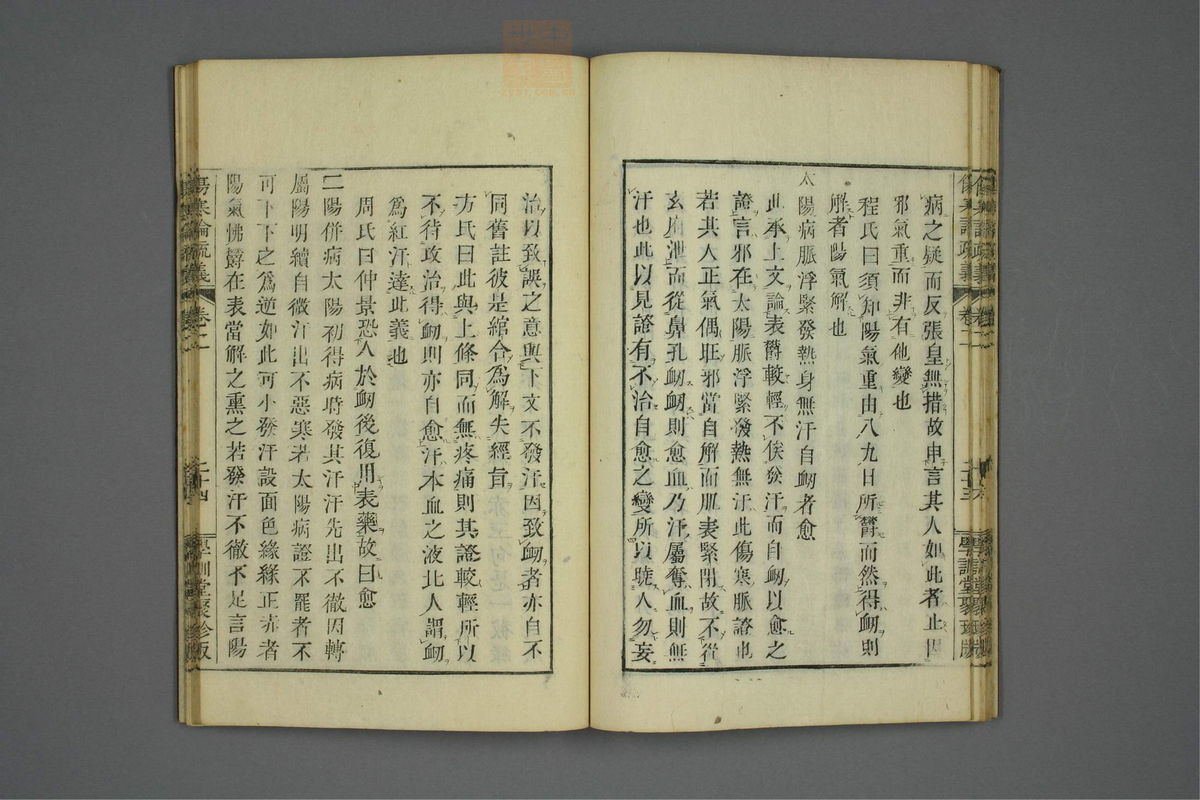 病之疑而反張皇無措故申言其人如此者止因
邪氣重而非有他變也
程氏曰須知陽氣重由八九日所鬱而然得衂則
解者陽氣解也
太陽病脈浮緊發熱身無汗自衂者愈
此承上文論表鬱較輕不俟發汗而自衂以愈之
證言邪在太陽脈浮緊發熱無汗此傷寒脈證也
若其人正氣偶旺邪當自解而肌表緊閉故不從
玄府泄而從鼻孔衂衂則愈血乃汗屬奪血則無
汗也此以見證有不治自愈之變所以曉人勿妄
治以致誤之意與下文不發汗因致衂者亦自不
同舊註彼是綰合爲解失經旨
方氏曰此與上條同而無疼痛則其證較輕所以
不待攻治得衂則亦自愈汗本血之液北人謂衂
爲紅汗達此義也
周氏曰仲景恐人於衂後復用表藥故曰愈
二陽併病太陽初得病時發其汗汗先出不徹因轉
屬陽明續自微汗出不惡寒若太陽病證不罷者不
可下下之爲逆如此可小發汗設面色緣緣正赤者
陽氣怫鬱在表當解之熏之若發汗不徹不足言陽
傷寒論疏義
卷二
二十四
學訓堂聚珍版